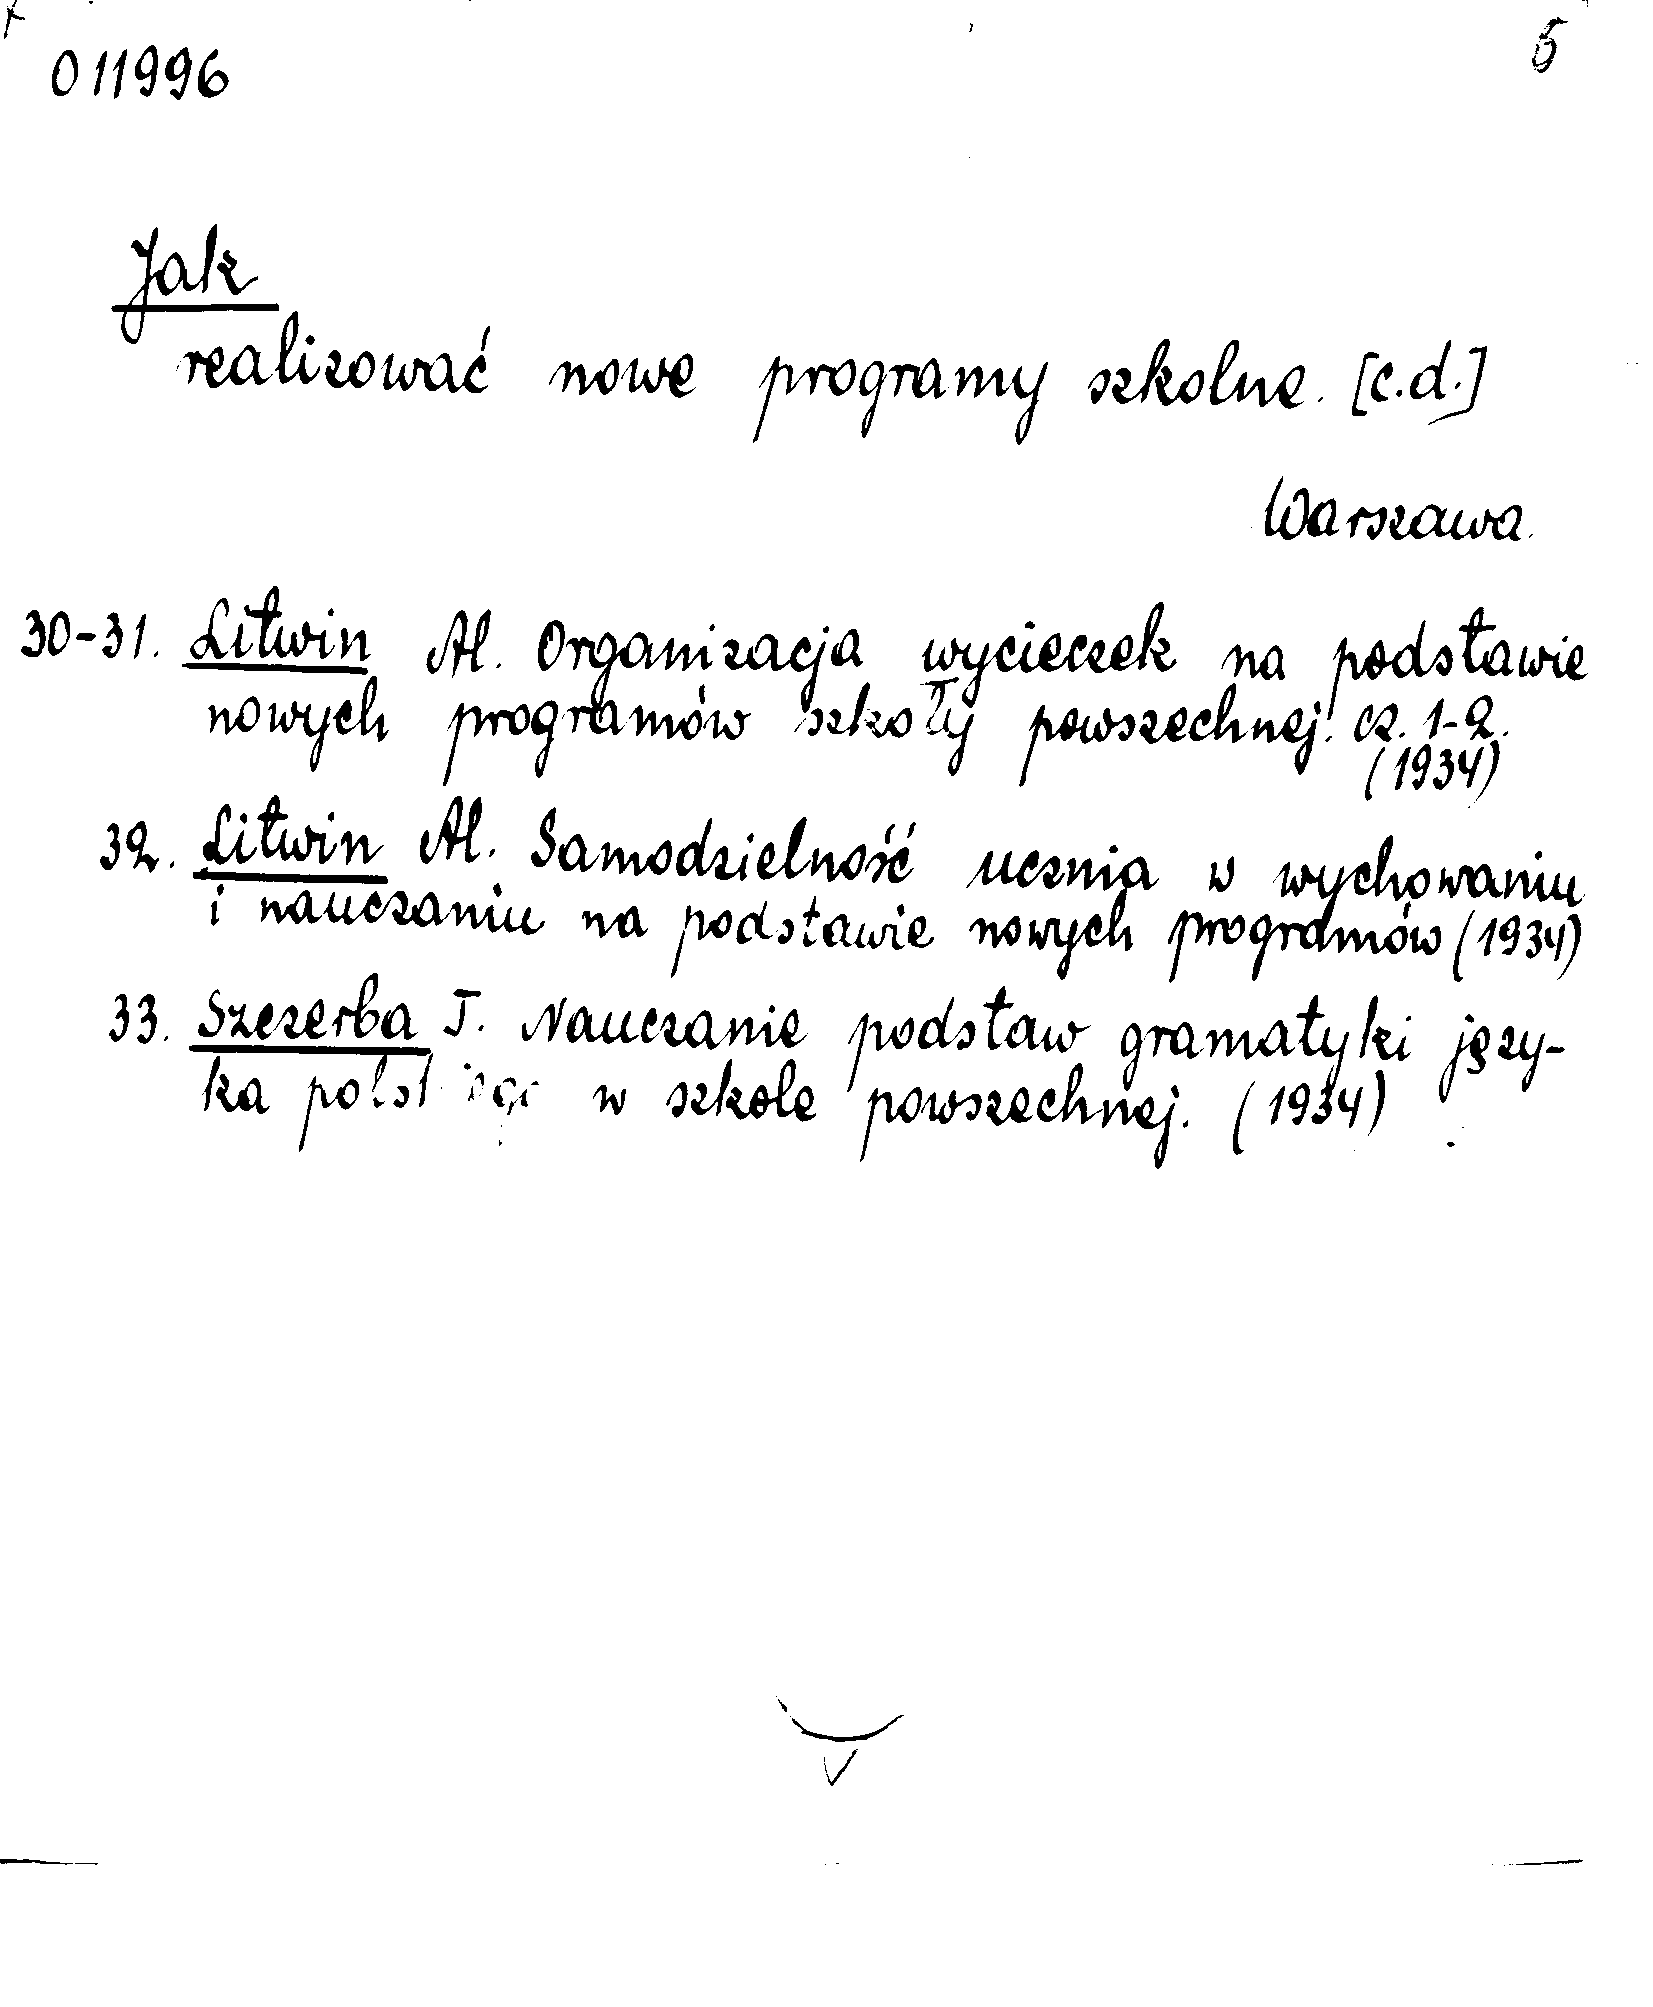 011996
5
Jak
realizować nowe programy szkolne. [c.d.]
Warszawa.
30-31. Litwin Al. Organizacja wycieczek na podstawie
nowych programów szkoły powszechnej. cz. 1-2.
(1934)
32. Litwin Al. Samodzielność ucznia w wychowaniu
i nauczaniu na podstawie nowych programów (1934)
33. Szczerba T. Nauczanie podstaw gramatyki języ-
ka polskiego w szkole powszechnej. (1934)